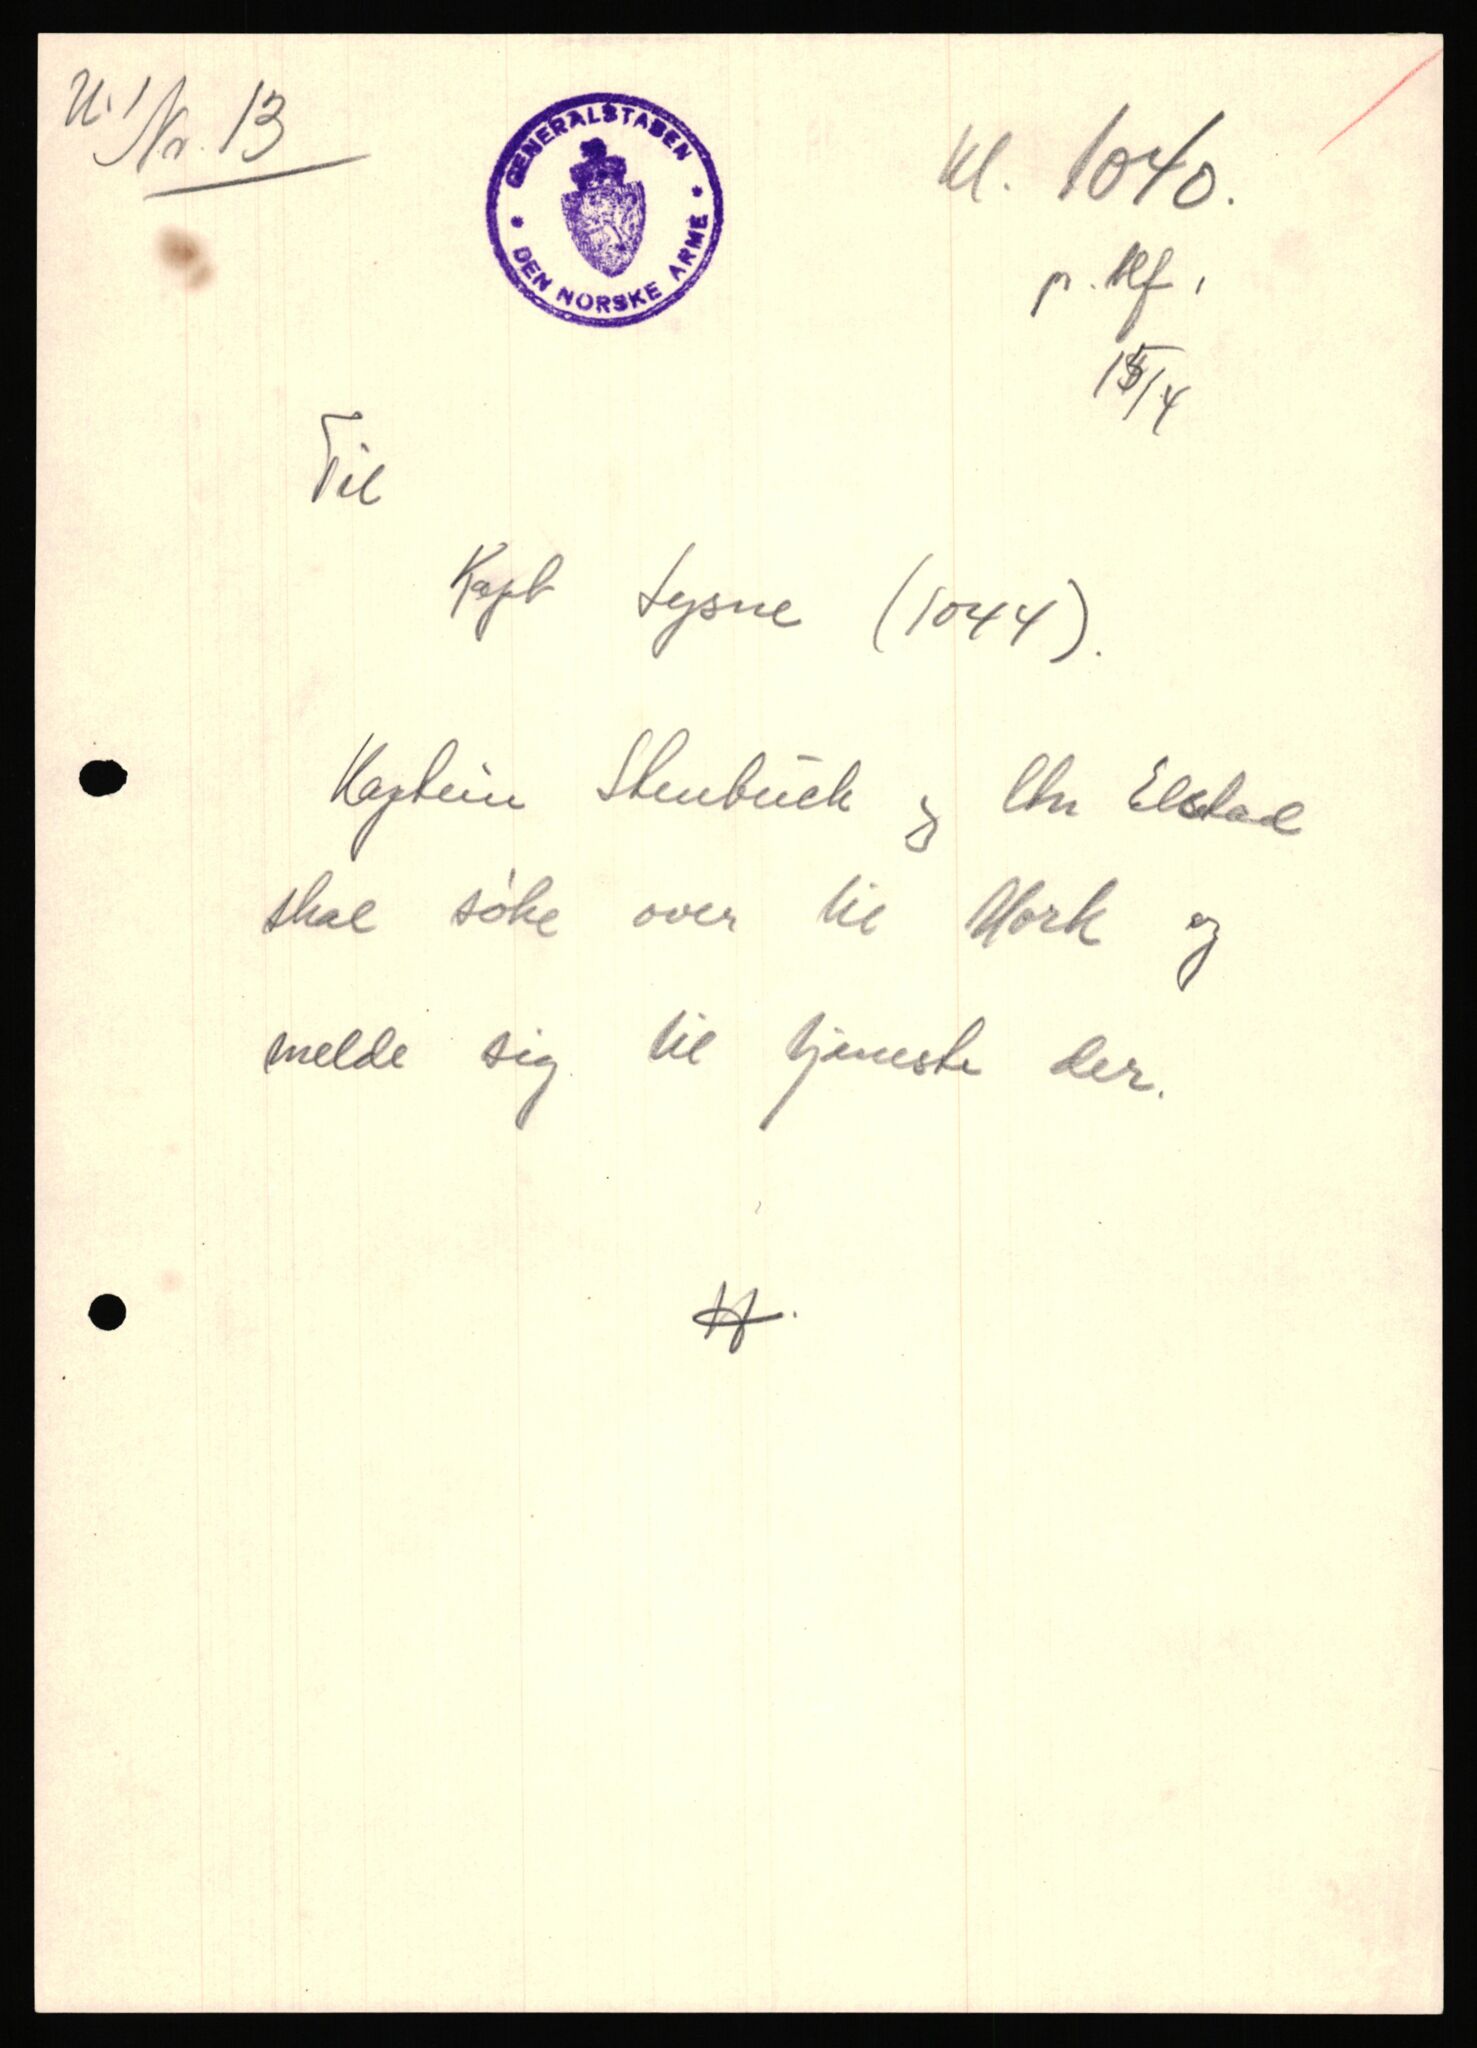 U.1 Nr. 13
GENERALSTABEN
* DEN NORSKE ARME *
kl. 1040.
p. tlf.
15/4
Til
Kapt Lysne (1044).
Kaptein Stenbück og ltn Elstad
skal söke over til Mork og
melde sig til tjeneste der.
H.